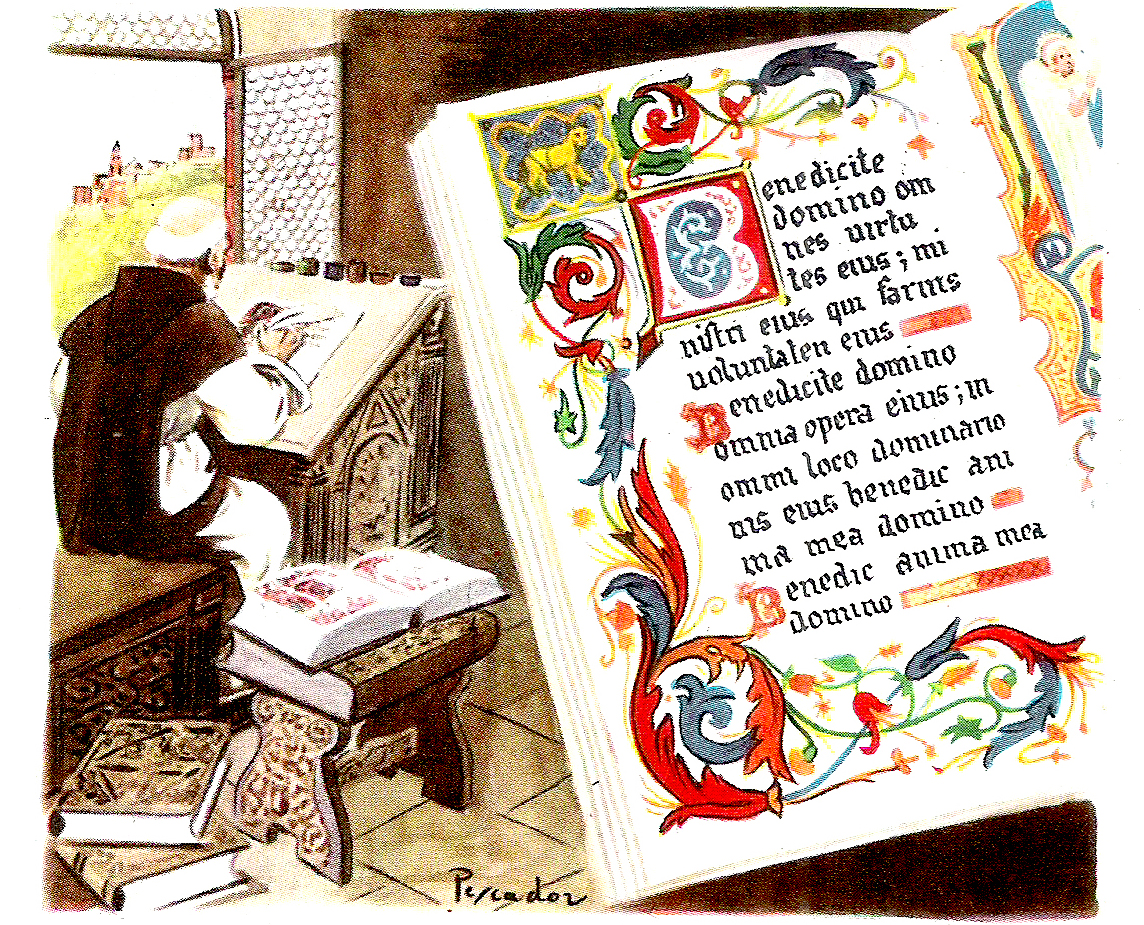 Benedicite
domino om
nes uirtu
tes eius; mi
nistri eius qui farins
uoluntaten eius
Benedicite domino
omnia opera eius; in
omni loco dominario
nis eius benedic ani
ma mea domino
Benedic anima mea
domino
Pescador